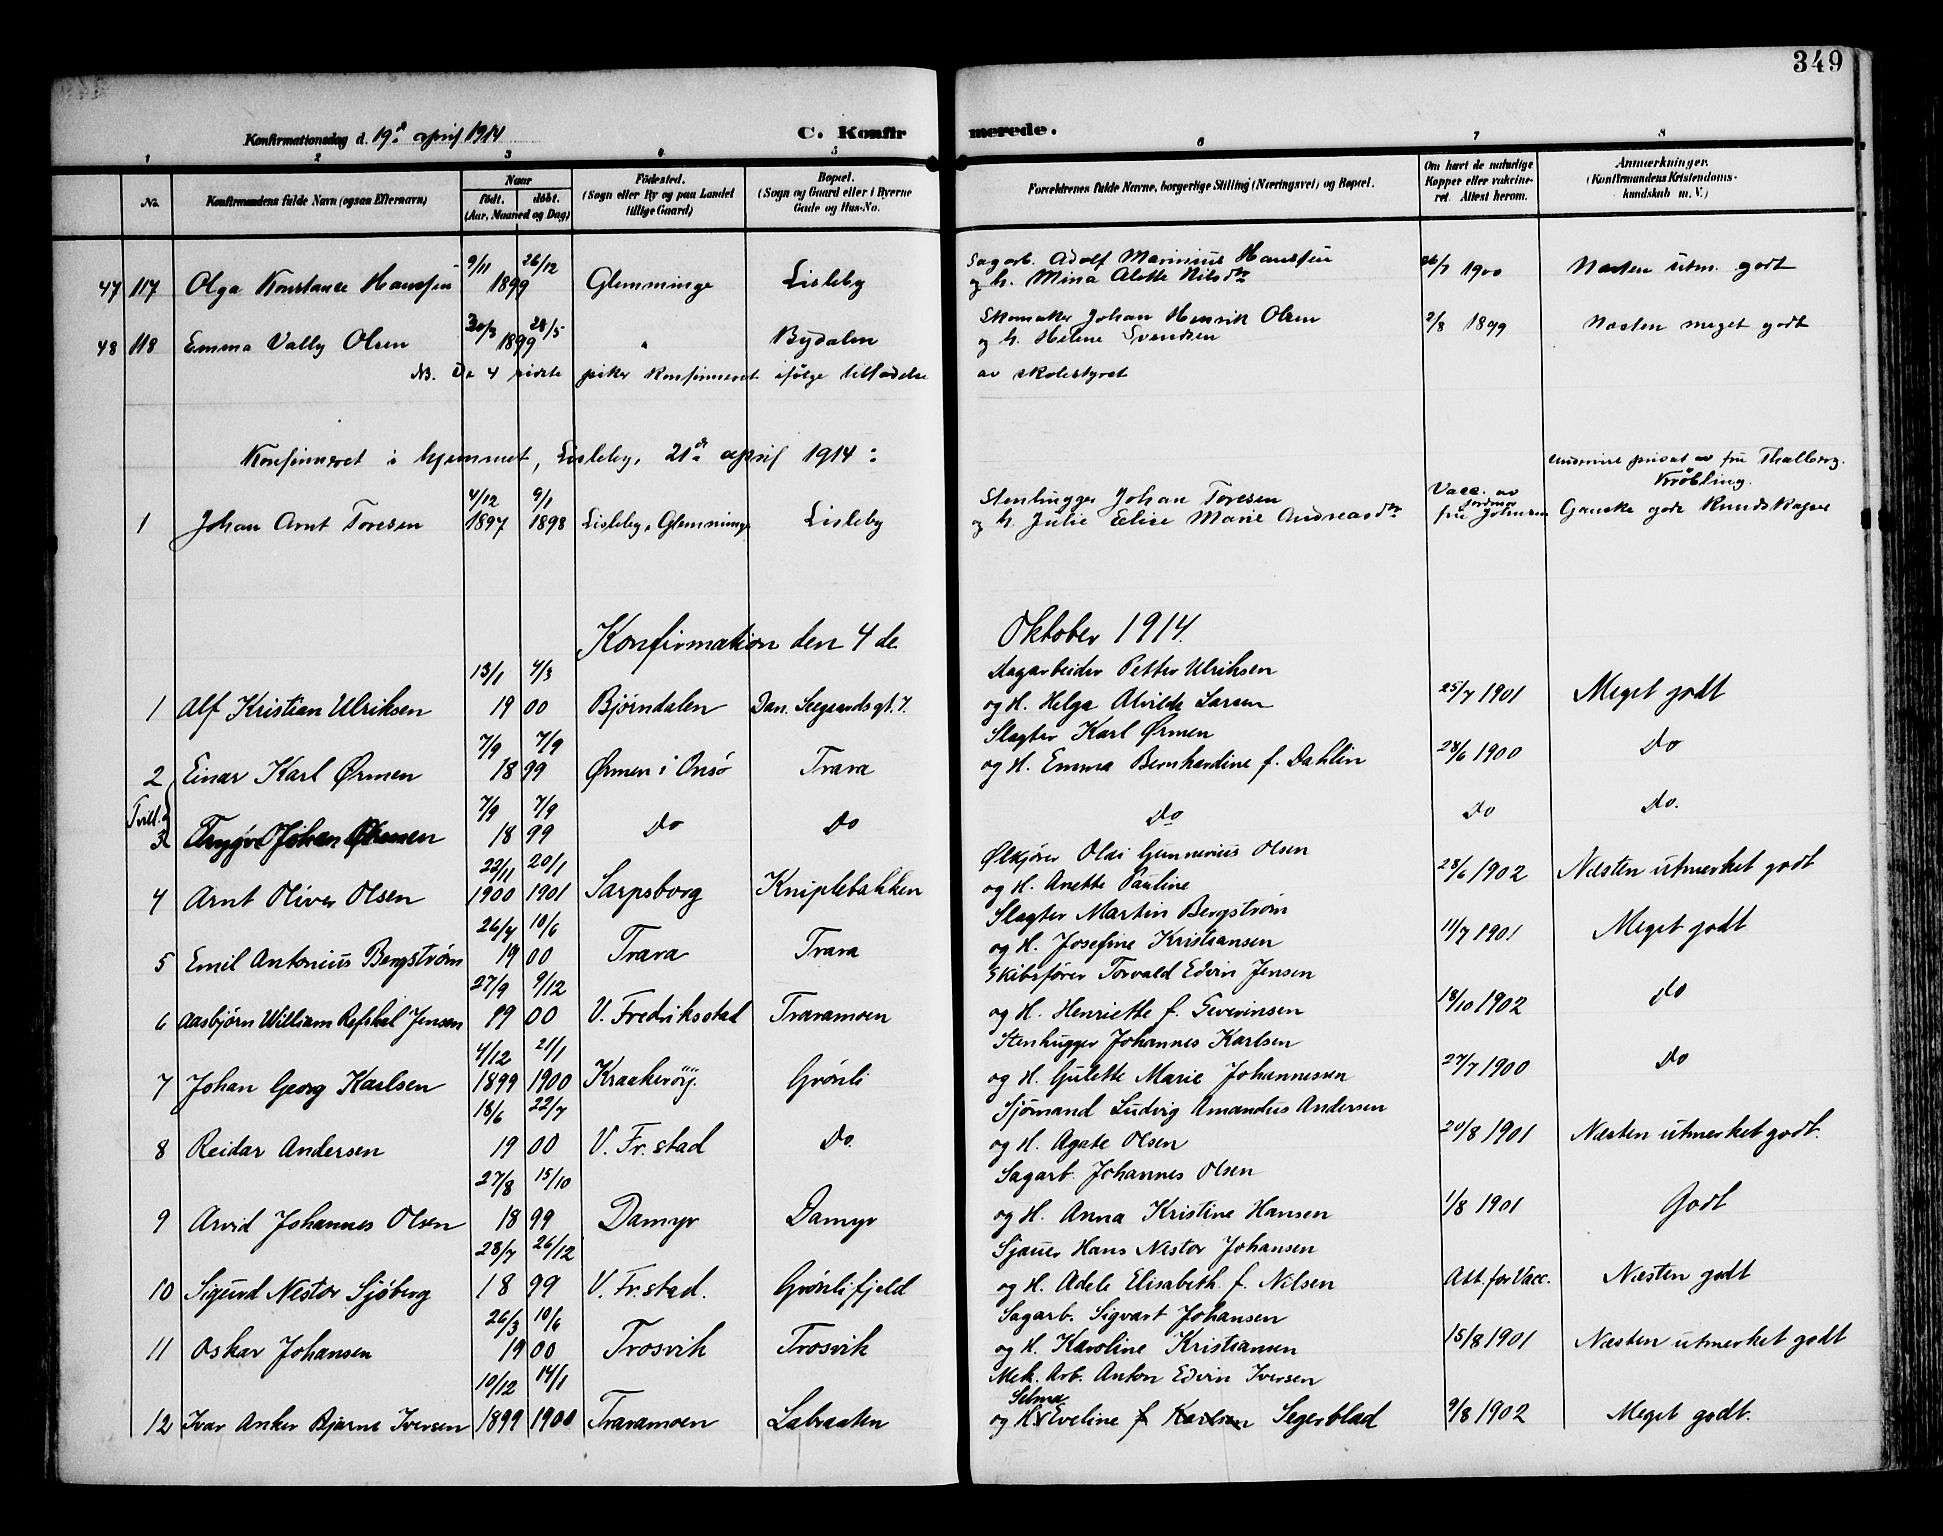 349
Konfirmationsdag d. 19de april 1914
C. Konfirmerede.
1 2 3 4 5 6 7 8
No.
Konfirmandens fulde Navn (ogsaa Efternavn)
Naar
født. døbt.
(Aar, Maaned og Dag)
Fødested.
(Sogn eller By og paa Landet
tillige Gaard)
Bopæl.
(Sogn og Gaard eller i Byerne
Gade og Hus-No.
Forældrenes fulde Navne, borgerlige Stilling (Næringsvei) og Bopæl.
Om havt de naturlige
Kopper eller vakcine-
ret. Attest herom.
Anmærkninger.
(Konfirmandens Kristendoms-
kundskab m. V.)
9/11 26/12 Sagarb. Adolf Marinius Hanssen
47 117 Olga Konstance Hanssen 1899 Glemminge Lisleby og h. Mina Alette Nilsdtr 26/7 1900 Næsten utm. godt
30/3 28/5 Skomaker Johan Henrik Olsen
48 118 Emma Vally Olsen 1899 " Bydalen og h. Helene Svendsen 2/8 1899 Næsten meget godt
NB. De 4 sidste piker konfirmeret ifølge tilladelse av skolestyret
Konfirmeret i hjemmet, Lisleby, 21de april 1914:
undervist privat av fru Thalberg.
Kröbling.
4/12 9/1 Stenhugger Johan Toresen Vacc. av jordmor
1 Johan Arnt Toresen 1897 1898 Lisleby, Glemminge Lisleby og h. Julie Elise Marie Andreasdtr fru Johnsen Ganske gode Kundskaper
Konfirmation den 4de Oktober 1914.
13/1 4/3 Sagarbeider Petter Ulriksen
1 Alf Kristian Ulriksen 1900 Bjørndalen Dan. Leegaardsgt. 7. og H. Helga Alvilde Larsen 25/7 1901 Meget godt
7/9 7/9 Slagter Karl Ørmen
2 Einar Karl Ørmen 1899 Ørmen i Onsø Trara og H. Emma Bernhardine f. Dahlin 28/6 1900 Do
Tvill.
7/9 7/9
3 Trygve Johan Ørmen 1899 Do Do Do Do Do.
22/11 20/1 Ølkjører Olai Gunnerius Olsen
4 Arnt Oliver Olsen 1900 1901 Sarpsborg Kniplebakken og H. Anette Pauline 28/6 1902 Næsten utmerket godt
26/4 10/6 Slagter Martin Bergström
5 Emil Antonius Bergström 1900 Trara Trara og H. Josefine Kristiansen 11/7 1901 Meget godt
27/9 9/12 Skibsfører Torvald Edvin Jensen
6 Aasbjørn William Refshal Jensen 1900 V. Fredriksstad Traramoen og H. Henriette f. Severinsen 18/10 1902 Do
4/12 21/1 Stenhugger Johannes Karlsen
7 Johan Georg Karlsen 1899 1900 Kraakerøy. Grønli og H. Gulette Marie Johannessen 27/7 1900 Do
18/6 22/7 Sjømand Ludvig Amandus Andersen
8 Reidar Andersen 1900 V. Fr.stad Do. og H. Agate Olsen 20/8 1901 Næsten utmerket godt.
27/8 15/10 Sagarb. Johannes Olsen
9 Arvid Johannes Olsen 1899 Damyr Damyr og H. Anna Kristine Hansen 1/8 1901 Godt
28/7 26/12 Sjauer Hans Nestor Johansen
10 Sigurd Nestor Sjöberg 1899 V. Fr.stad. Grønlifjeld og H. Adele Elisabeth f. Nilsen Att. for Vacc. Næsten godt
26/3 10/6 Sagarb. Sigvart Johansen
11 Oskar Johansen 1900 Trosvik Trosvik og H. Karoline Kristiansen 15/8 1901 Næsten utmerket godt
10/12 14/1 Mek. Arb. Anton Edvin Iversen
Selma
12 Ivar Anker Bjarne Iversen 1899 1900 Traramoen Labraaten og H. Eveline f. Karlsen Segerblad 9/8 1902 Meget godt.